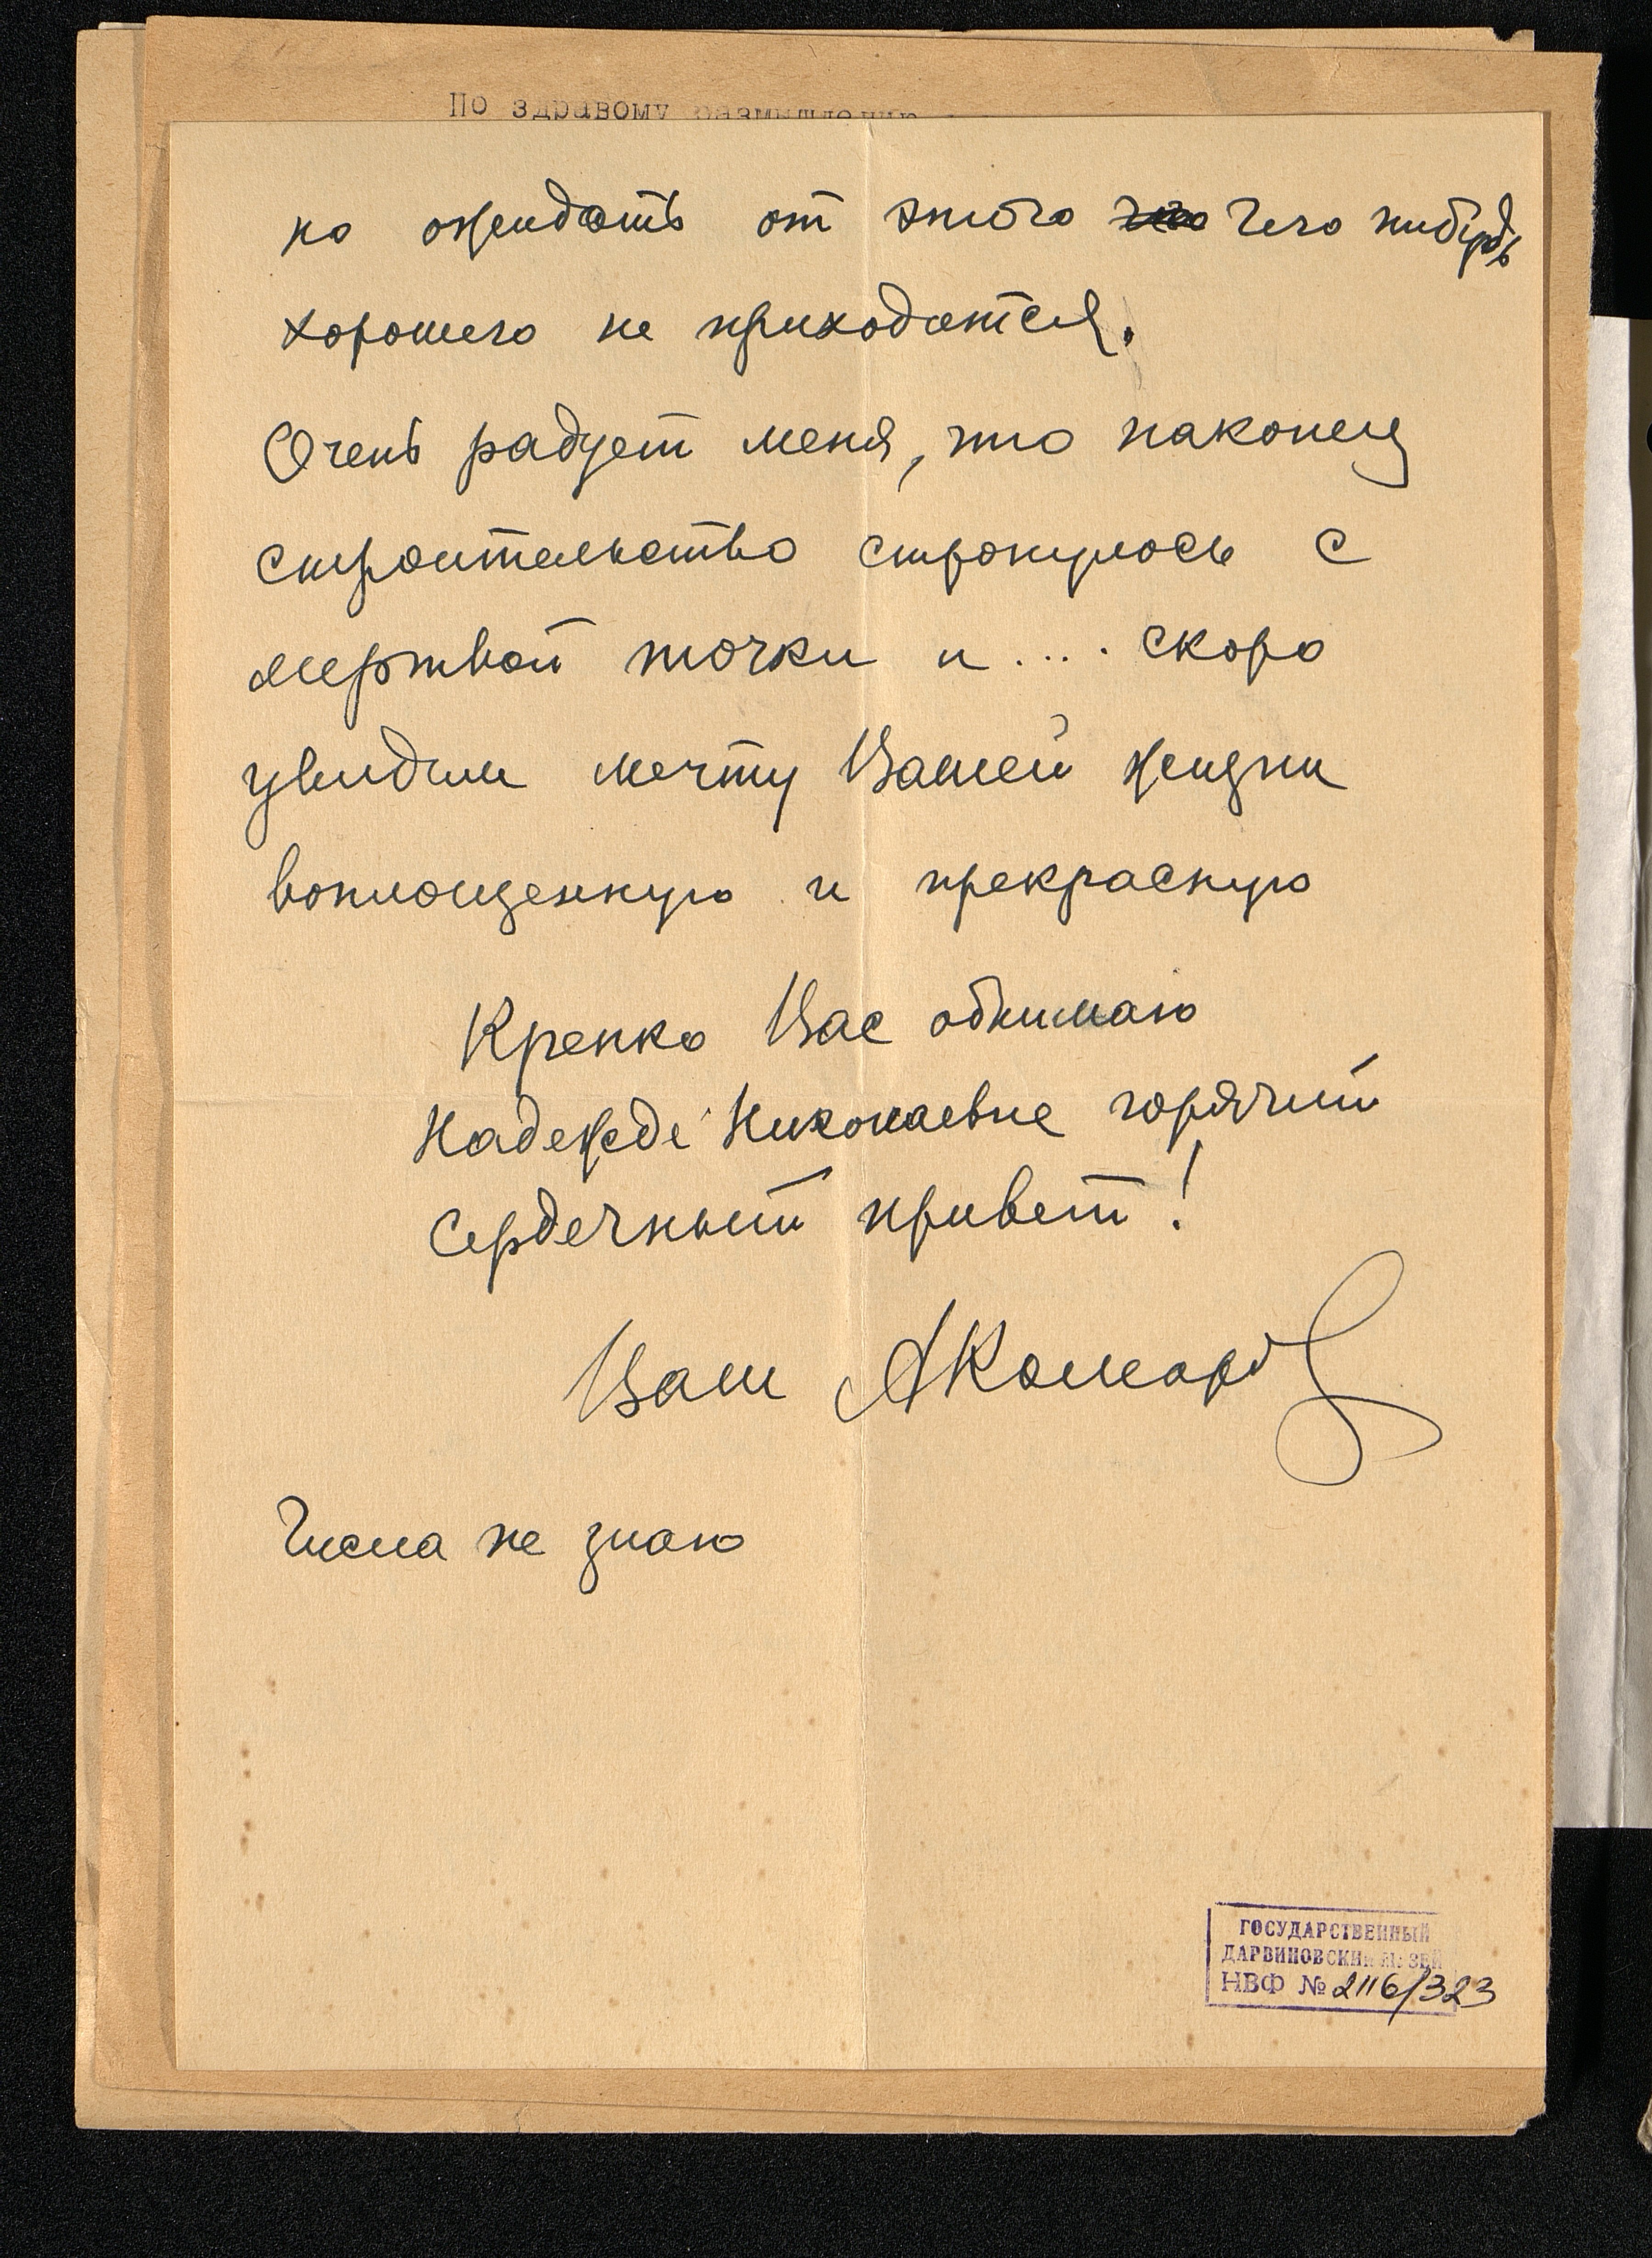 По здравому размышлению
но ожидать от этого чего нибудь
хорошего не приходится.
Очень радует меня, что наконец
строительство стронулось с
мертвой точки и .... скоро
увидим мечту Вашей жизни
воплощенную и прекрасную
Крепко Вас обнимаю
Надежде Николаевне горячий
сердечный привет!
Ваш АКомаров
Числа не знаю
ГОСУДАРСТВЕННЫЙ
ДАРВИНОВСКИЙ МУЗЕЙ
НВФ № 2116/323